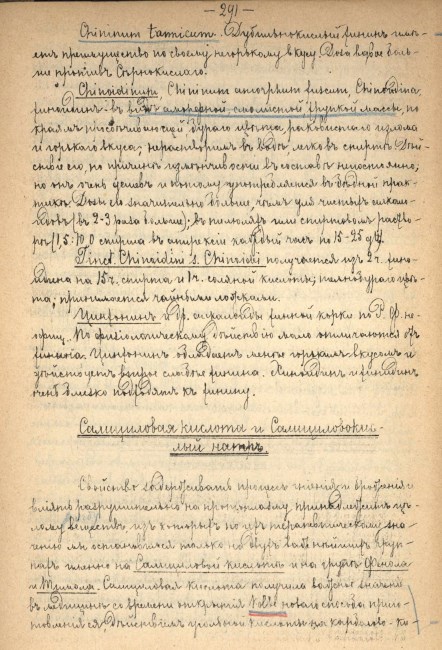 — 291 —
Chininum tannicum. Дубильнокислый хининъ имѣ-
етъ преимущество по своему негорькому вкусу. Доза вдвое боль-
ше противъ сѣрнокислаго.
Chinoidinum, Chininum amorphum fuscum, Chinoidina,
хиноидинъ въ видѣ аморфной, смолистой, хрупкой массы, по
краямъ просвѣчивающей, бураго цвѣта, раковистаго излома
и горькаго вкуса; нерастворимъ въ водѣ, легко въ спиртѣ. Дѣй-
ствіе его, по причинѣ измѣнчивости въ составѣ непостоянно;
но онъ очень дешевъ и потому употребляется въ бѣдной прак-
тикѣ. Дозы его значительно больше, чѣмъ для чистыхъ алкалои-
довъ (въ 2-3 раза больше); въ пилюляхъ или спиртовомъ раство-
рѣ (1,5:10,0 спирта въ апирексіи каждый часъ по 15-25 
Tinct. Chinoidini s. Chinioidei получается изъ 2 ч. хино-
идина на 15 ч. спирта и 1 ч. соляной кислоты; темнобураго цвѣ-
та; принимается чайными ложками.
Цинхонинъ и др. алкалоиды хинной корки по Р. Ф. не-
оффиц. По физіологическому дѣйствію мало отличаются отъ
хинина. Цинхонинъ обладаетъ менѣе горькимъ вкусомъ и
дѣйствуетъ вдвое слабѣе хинина. Хинидинъ и хинидинъ
очень близко подходятъ къ хинину.
Салициловая кислота и Салициловоки-
слый натръ.
Свойство задерживать процессъ гніенія и броженія и
вліять разрушительно на протоплазму принадлежитъ цѣ-
лому веществъ, изъ которыхъ по ихъ терапевтическому зна-
ченію мы остановимся только на двухъ важнѣйшихъ груп-
пахъ именно на Салициловой кислотѣ и на группѣ Фенола
и Тимола. Салициловая кислота получила важное значеніе
въ медицинѣ со времени открытія Kolbe новаго способа приго-
товленія ея дѣйствіемъ угольной кислоты на карболово-ки-